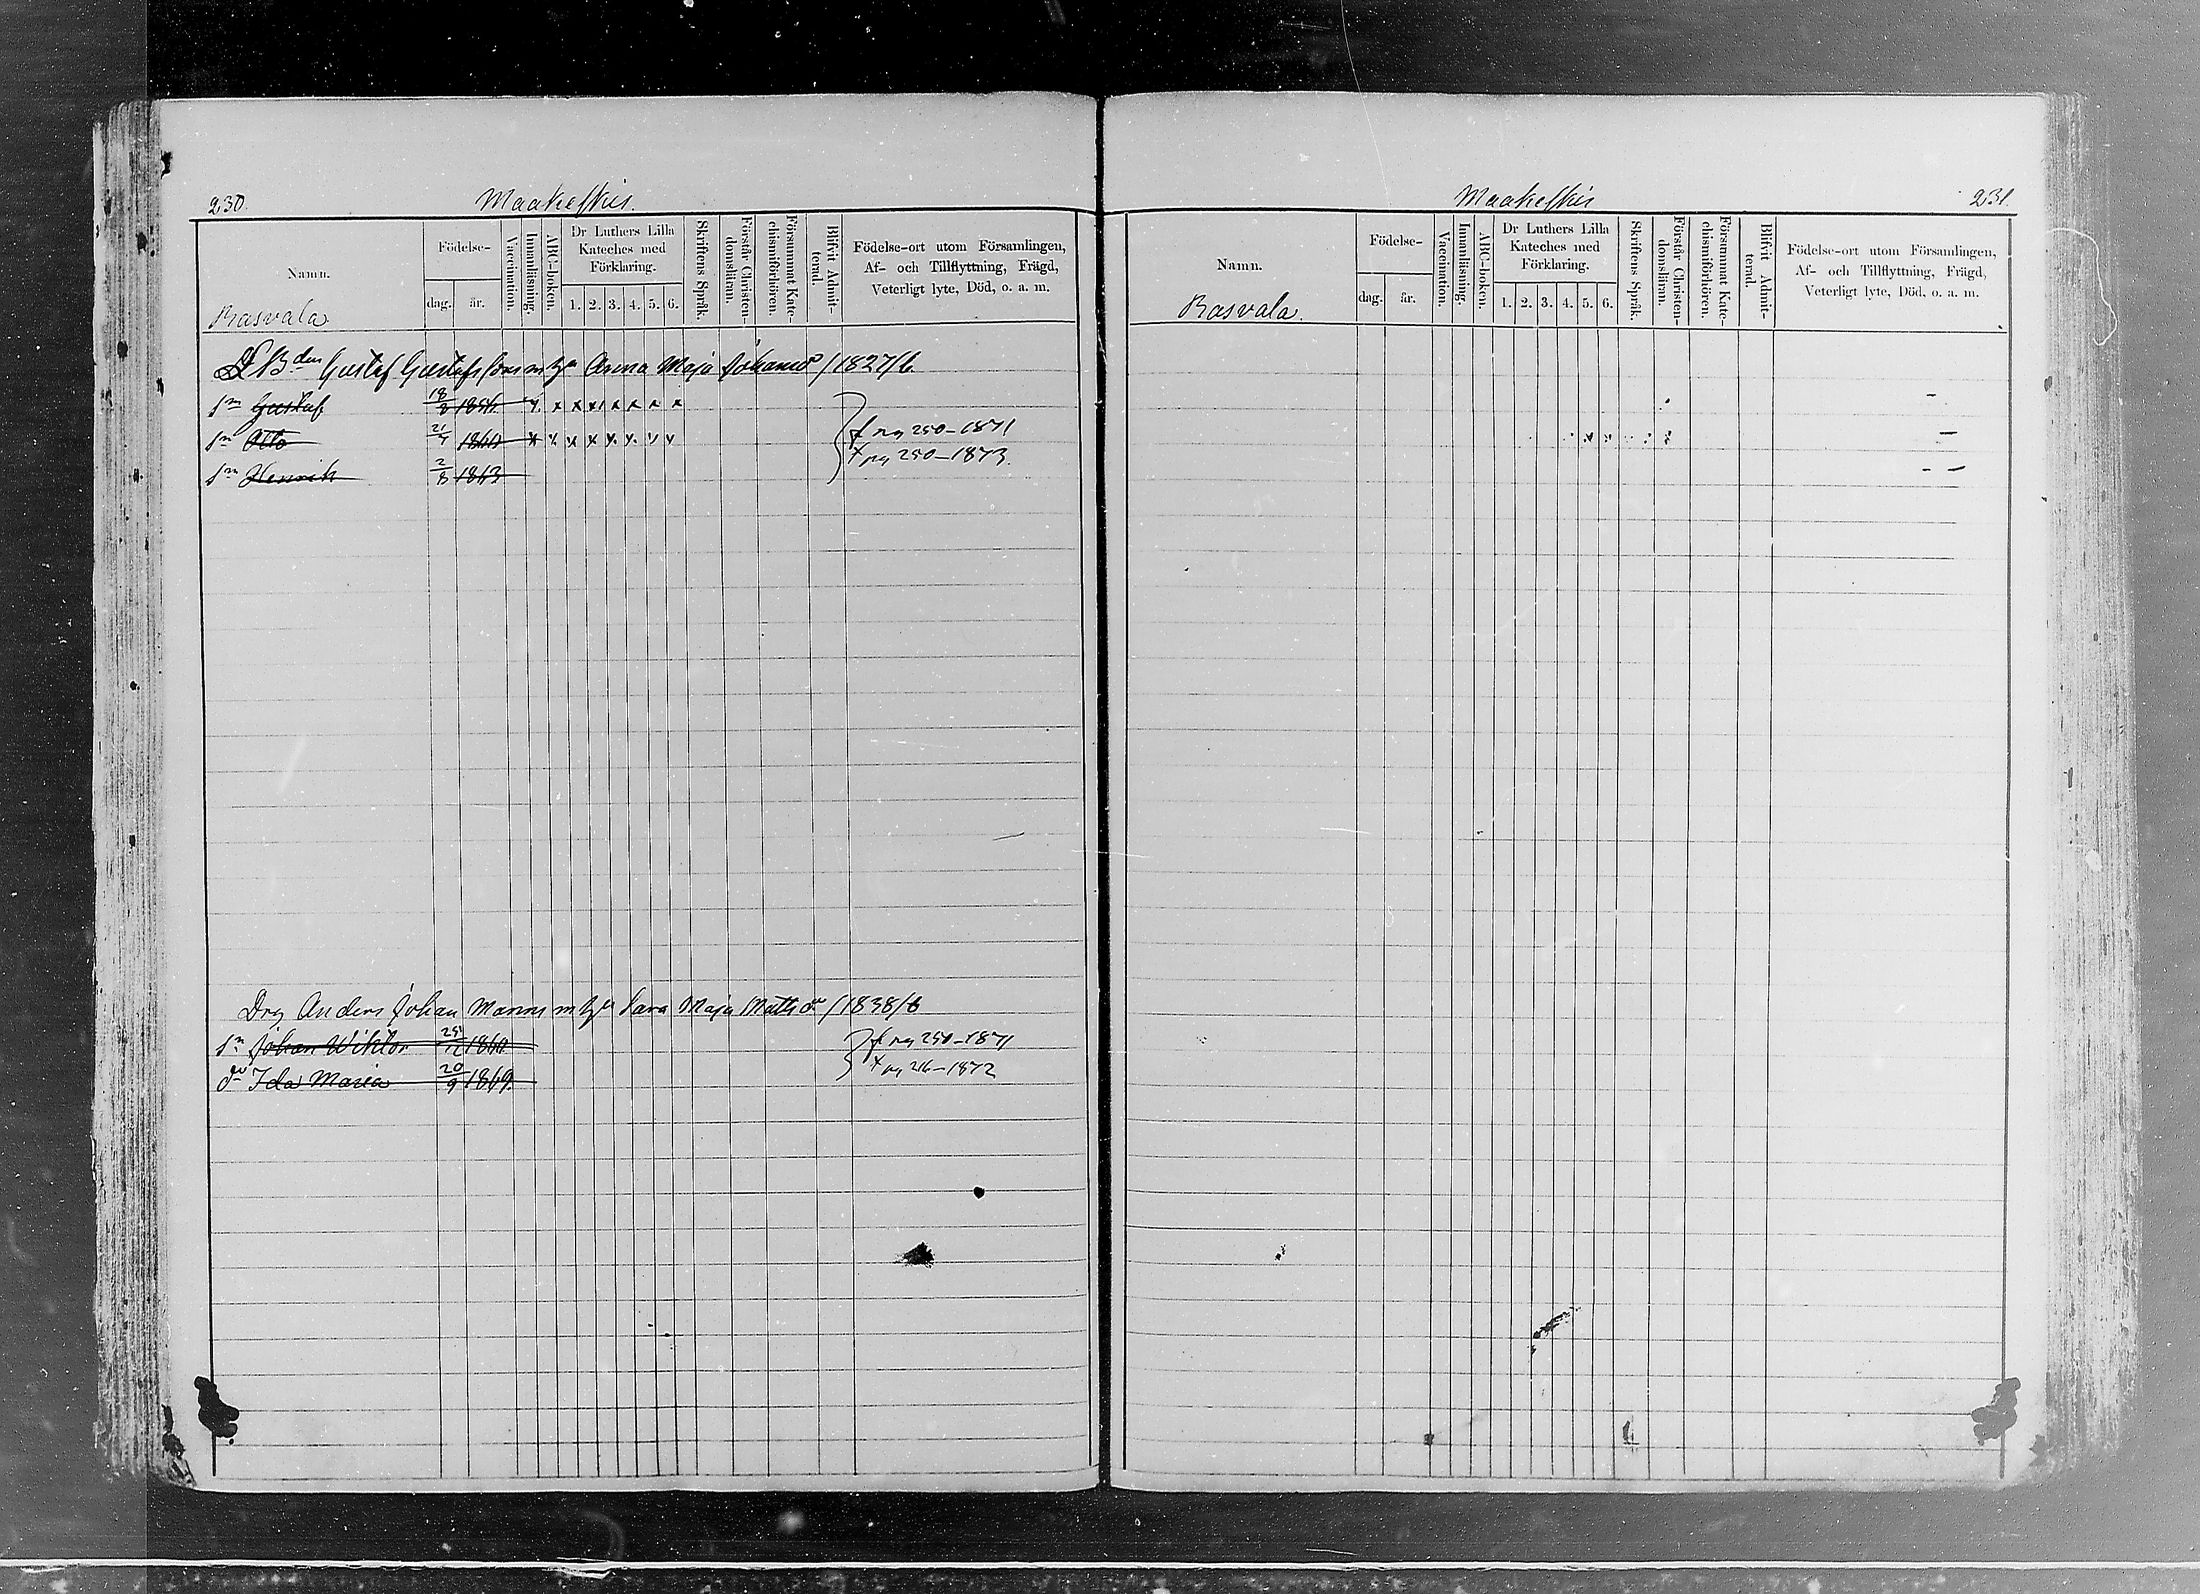 230. Maakeskis.
Namn. Födelse- dag. år. Vaccination. Innanläsning. ABC-boken. Dr Luthers Lilla Kateches med Förklaring. 1. 2. 3. 4. 5. 6. Skriftens Språk. Förstår Christen-domsläran. Försummat Kate-chismiförhören. Blifvit Admit-terad. Födelse-ort utom Församlingen, Af- och Tillflyttning, Frägd, Veterligt lyte, Död, o. a. m.
Rasvala
Bden Gustaf Gustafsson m hu Anna Maja Johansdr /1827/6
Sn Gustaf 18/8 1856 x x x x x x x x
Sn Otto 21/4 1860 x x x x x x v v f pag 250-1871
Sn Henrik 2/8 1863 x pag 250-1873.
Drg Anders Johan Manns m hu Sara Maja Mattsdr /1838/6
Sn Johan Wiktor 25/12 1860 f pag 250-1871
dr Ida Maria 20/9 1869. x pag 216-1872
Maakeskis 231.
Namn. Födelse- dag. år. Vaccination. Innanläsning. ABC-boken. Dr Luthers Lilla Kateches med Förklaring. 1. 2. 3. 4. 5. 6. Skriftens Språk. Förstår Christen-domsläran. Försummat Kate-chismiförhören. Blifvit Admit-terad. Födelse-ort utom Församlingen, Af- och Tillflyttning, Frägd, Veterligt lyte, Död, o. a. m.
Rasvala.